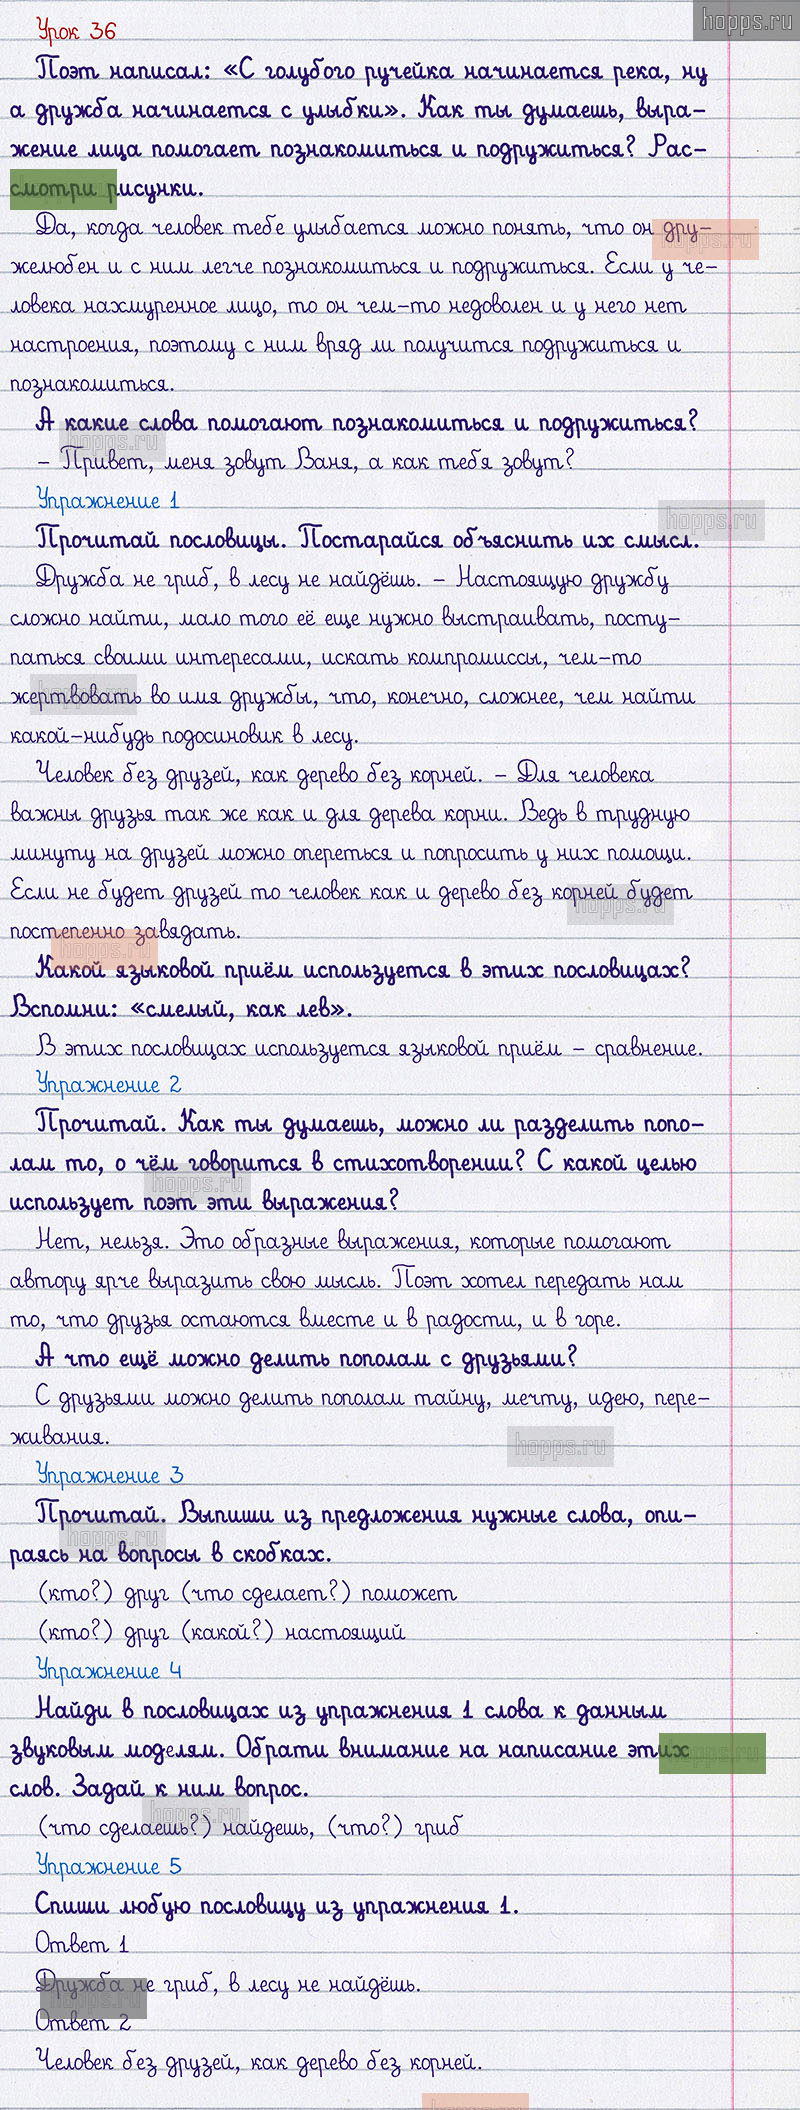 hopps.ru
Урок 36
Поэт написал: «С голубого ручейка начинается река, ну
а дружба начинается с улыбки». Как ты думаешь, выра-
жение лица помогает познакомиться и подружиться? Рас-
смотри рисунки.
Да, когда человек тебе улыбается можно понять, что он дру-
желюбен и с ним легче познакомиться и подружиться. Если у че-
ловека нахмуренное лицо, то он чем-то недоволен и у него нет
настроения, поэтому с ним вряд ли получится подружиться и
познакомиться.
А какие слова помогают познакомиться и подружиться?
– Привет, меня зовут Ваня, а как тебя зовут?
Упражнение 1
Прочитай пословицы. Постарайся объяснить их смысл.
Дружба не гриб, в лесу не найдёшь. – Настоящую дружбу
сложно найти, мало того её еще нужно выстраивать, посту-
паться своими интересами, искать компромиссы, чем-то
жертвовать во имя дружбы, что, конечно, сложнее, чем найти
какой-нибудь подосиновик в лесу.
Человек без друзей, как дерево без корней. – Для человека
важны друзья так же как и для дерева корни. Ведь в трудную
минуту на друзей можно опереться и попросить у них помощи.
Если не будет друзей то человек как и дерево без корней будет
постепенно завядать.
Какой языковой приём используется в этих пословицах?
Вспомни: «смелый, как лев».
В этих пословицах используется языковой приём – сравнение.
Упражнение 2
Прочитай. Как ты думаешь, можно ли разделить попо-
лам то, о чём говорится в стихотворении? С какой целью
использует поэт эти выражения?
Нет, нельзя. Это образные выражения, которые помогают
автору ярче выразить свою мысль. Поэт хотел передать нам
то, что друзья остаются вместе и в радости, и в горе.
А что ещё можно делить пополам с друзьями?
С друзьями можно делить пополам тайну, мечту, идею, пере-
живания.
Упражнение 3
Прочитай. Выпиши из предложения нужные слова, опи-
раясь на вопросы в скобках.
(кто?) друг (что сделает?) поможет
(кто?) друг (какой?) настоящий
Упражнение 4
Найди в пословицах из упражнения 1 слова к данным
звуковым моделям. Обрати внимание на написание этих
слов. Задай к ним вопрос.
(что сделаешь?) найдешь, (что?) гриб
Упражнение 5
Спиши любую пословицу из упражнения 1.
Ответ 1
Дружба не гриб, в лесу не найдёшь.
Ответ 2
Человек без друзей, как дерево без корней.